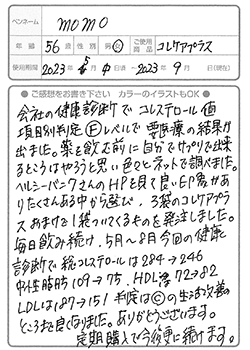 ペンネーム momo
年齢 56歳 性別 男・女 ご使用商品 コレケアプラス
使用期間 2023年5月 中旬 ~ 2023年9月 日(現在)
● ご感想をお書き下さい カラーのイラストもOK ●
会社の健康診断でコレステロール値
項目別判定Ⓕレベルで要医療の結果が
出ました。薬を飲む前に自分でサプリで出来
るところはやろうと思い色々とネットで調べました。
ヘルシーバンクさんのHPを見て良い
たくさんある中から選び、3袋のコレケアプラ
スおまけで1袋ついてくるものを発注しました。
毎日飲み続け、5月~8月今回の健康
診断で総コレステロールは284→246
中性脂肪109→75、HDL 72→82
LDLは187→151 判定はⒸの生活改善の
ところまで良くなりました。ありがとうございます。
定期購入で今後更に続けます。